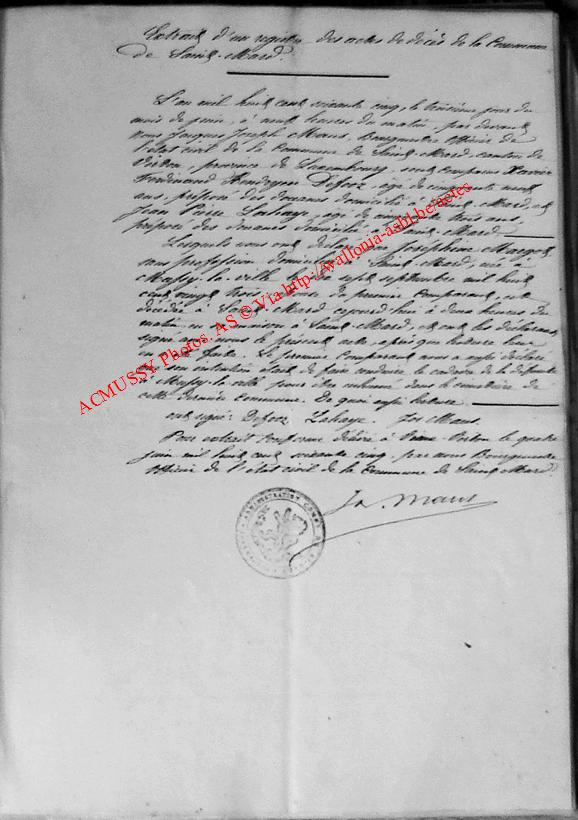 Extrait d'un registre des actes de décès de la Commune
de Saint-Mard.
L'an mil huit cent soixante cinq, le troisième jour du
mois de juin, à neuf heures du matin, par devant
nous Jacques Joseph Maus, Bourgmestre officier de
l'état civil de la Commune de Saint-Mard, canton de
Virton, province de Luxembourg, sont comparus Xavier
Ferdinand Defooz, âgé de cinquante neuf
ans, préposé des douanes domicilié à Saint-Mard, et
Jean Pierre Lahaye, âgé de cinquante trois ans,
préposé des douanes domicilié à Saint-Mard.
Lesquels nous ont déclaré Joséphine
sans profession domiciliée à Saint-Mard, née à
Mussy-la-ville le sept septembre mil huit
cent vingt trois, du premier Comparant, est
décédée à Saint-Mard, aujourd'hui à deux heures du
matin, en maison à Saint-Mard, et ont les déclarants
signé avec nous le présent acte, après que lecture leur
en a été faite. Le premier Comparant nous a aussi déclaré
que son intention était de faire conduire le cadavre de la défunte
à Mussy-la-ville pour être inhumé dans le cimetière de
cette dernière commune. De quoi aussi lecture
ont signé: Defooz Lahaye. Jos Maus.
Pour extrait conforme délivré à Saint-Mard le quatre
juin mil huit cent soixante cinq, par nous Bourgmestre
officier de l'état civil de la Commune de Saint-Mard.
J. Maus
ADMINISTRATION COMM
ACMUSSY Photos. AS © Via http://wallonia-asbl.be/actes